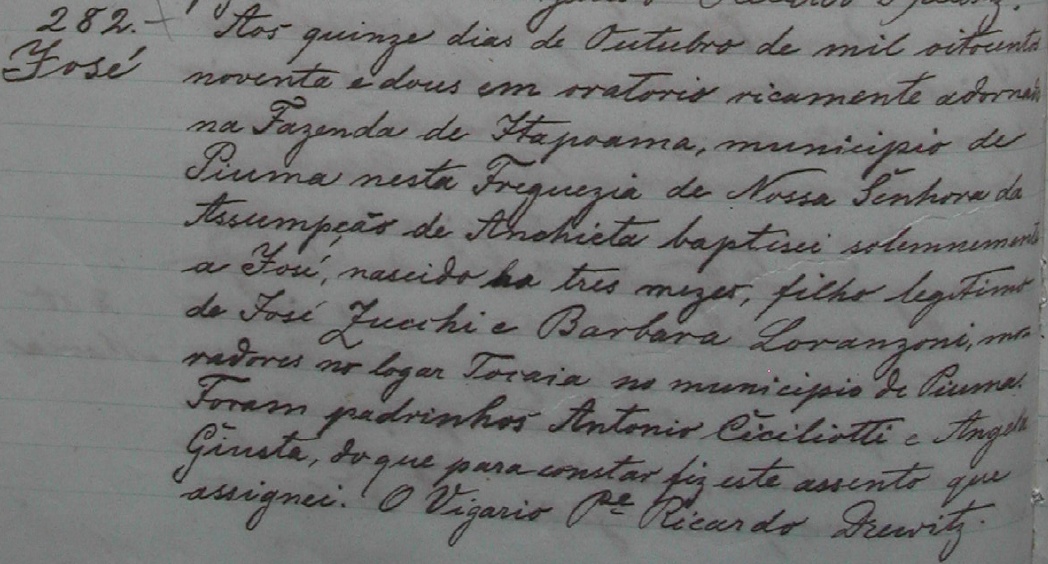 282.
José
Aos quinze dias de Outubro de mil oitocentos
noventa e dous em oratorio ricamente adornado
na Fazenda de Itapoama, municipio de
Piuma nesta Freguezia de Nossa Senhora da
Assumpção de Anchieta baptisei solemnemente
a José, nascido ha tres mezes, filho legitimo
de José Zucchi e Barbara Loranzoni, mo-
radores no logar Tocaia no municipio de Piuma.
Foram padrinhos Antonio Ceciliotti e Angela
Giusta, do que para constar fiz este assento que
assignei. O Vigario Pe Ricardo Drewitz.